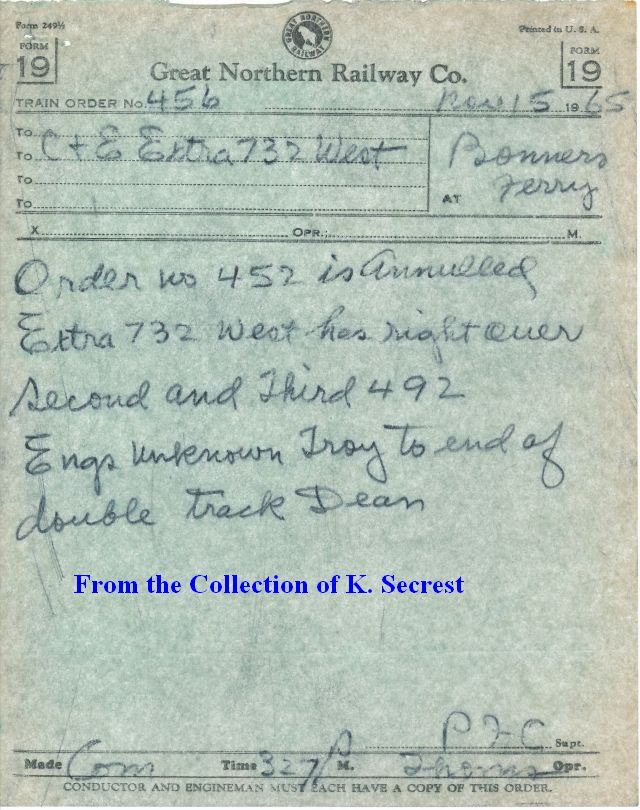 Form 249½
Printed in U. S. A.
GREAT NORTHERN RAILWAY
FORM 19
FORM 19
Great Northern Railway Co.
TRAIN ORDER No. 456 Nov 15 1965
To
To C + E Extra 732 West
To
To
AT Bonners Ferry
X OPR.: M.
Order no 452 is Annulled
Extra 732 West has right over
Second and Third 492
Engs unknown Troy to end of
double track Dean
From the Collection of K. Secrest
Supt.
Made Com Time 327 P M. Opr.
CONDUCTOR AND ENGINEMAN MUST EACH HAVE A COPY OF THIS ORDER.